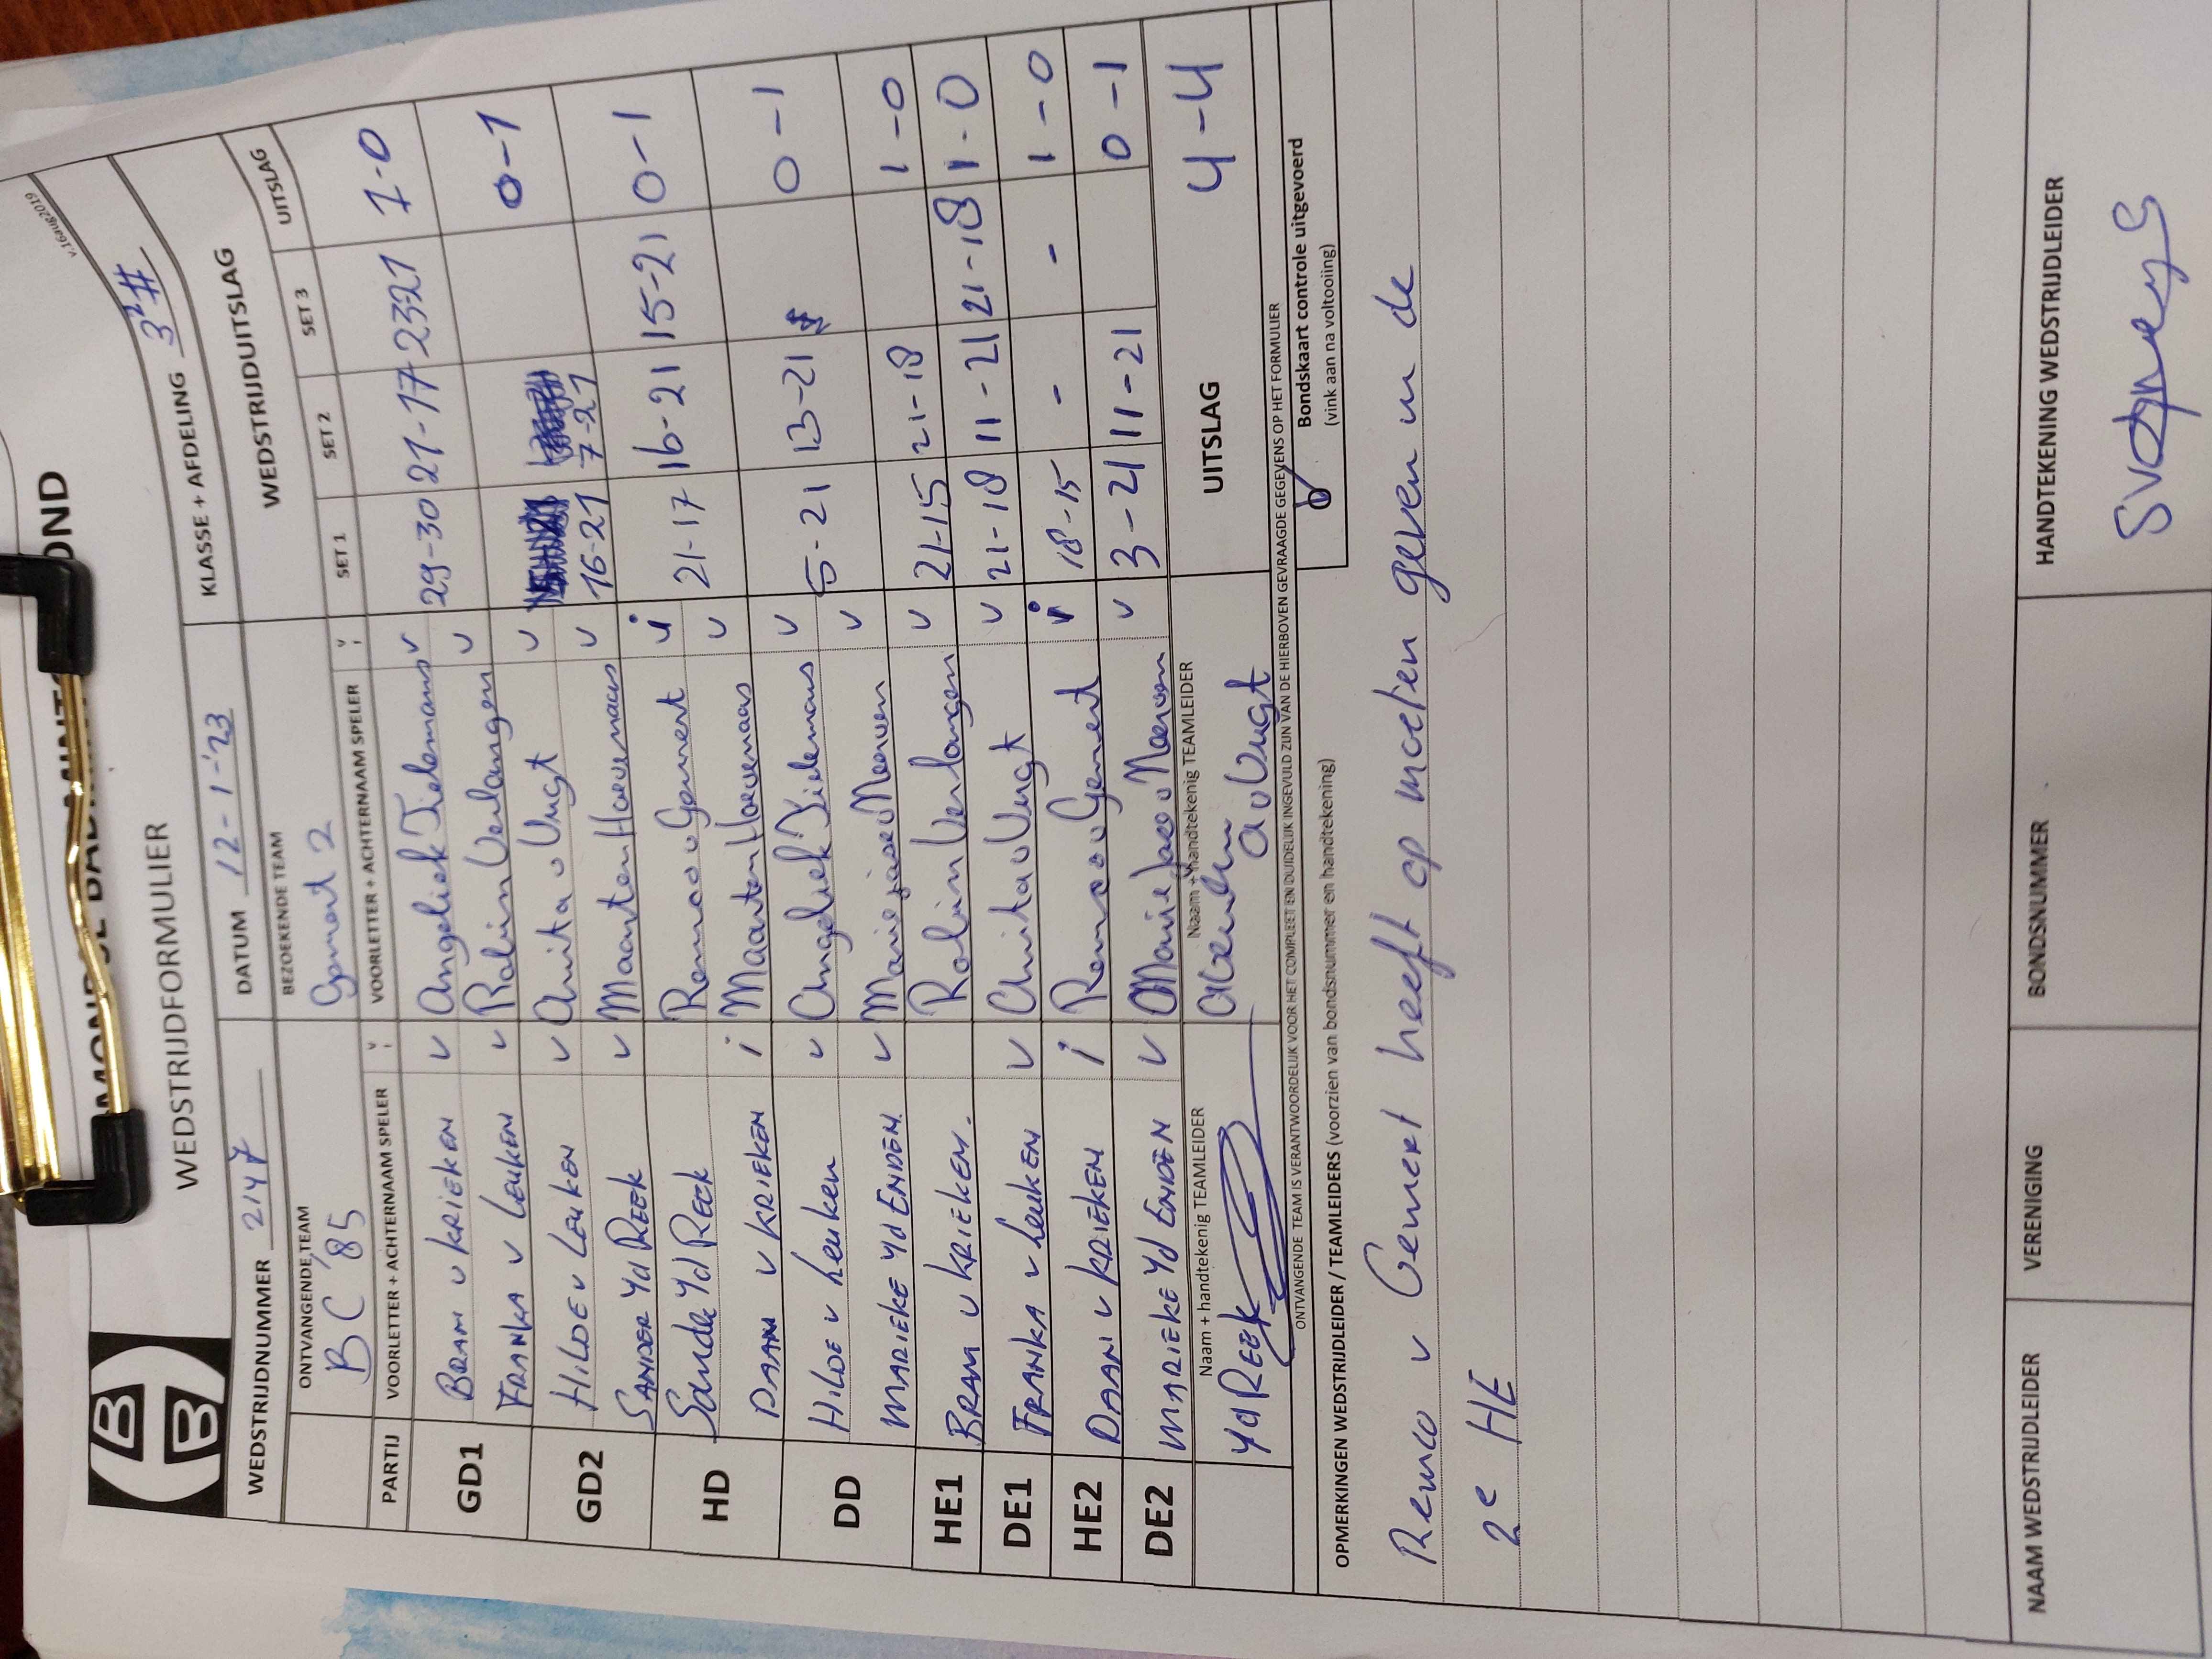 v.16aug2019
WEDSTRIJDFORMULIER
WEDSTRIJDNUMMER 2147 DATUM 12-1-'23 KLASSE + AFDELING
ONTVANGENDE TEAM BEZOEKENDE TEAM WEDSTRIJDUITSLAG
BC '85 Gemert 2
PARTIJ VOORLETTER + ACHTERNAAM SPELER V VOORLETTER + ACHTERNAAM SPELER V SET 1 SET 2 SET 3 UITSLAG
GD1 BRAM v KRIEKEN v Angeliek Tielemans v 29-30 21-17 23-21 1-0
FRANKA v LEUKEN v Robin Verlangen v
GD2 HILDE v LEUKEN v Anita v Vugt v 16-21 7-21 0-1
SANDER vd REEK v Maarten Hoevenaas v
HD Sander vd REEK Remco v Gemert i 21-17 16-21 15-21 0-1
DAAN v KRIEKEN i Maarten Hoevenaas v
DD HILDE v Leuken v Angeliek Tielemans v 5-21 13-21 0-1
MARIEKE vd ENDEN v v
HE1 BRAM v KRIEKEN. Robin Verlangen v 21-15 21-18 1-0
DE1 FRANKA v Leuken v Anita v Vugt v 21-18 11-21 21-18 1-0
HE2 DAAN v KRIEKEN i Remco v Gemert i 18-15 - - 1-0
DE2 MARIEKE vd ENDEN v v 3-21 11-21 0-1
Naam + handtekenig TEAMLEIDER Naam + handtekenig TEAMLEIDER UITSLAG 4-4
vd REEK A v Vugt
ONTVANGENDE TEAM IS VERANTWOORDELIJK VOOR HET COMPLEET EN DUIDELIJK INGEVULD ZIJN VAN DE HIERBOVEN GEVRAAGDE GEGEVENS OP HET FORMULIER
Bondskaart controle uitgevoerd
(vink aan na voltooiing)
OPMERKINGEN WEDSTRIJDLEIDER / TEAMLEIDERS (voorzien van bondsnummer en handtekening)
Remco v Gemert heeft op moeten geven in de
2e HE
NAAM WEDSTRIJDLEIDER VERENIGING BONDSNUMMER HANDTEKENING WEDSTRIJDLEIDER